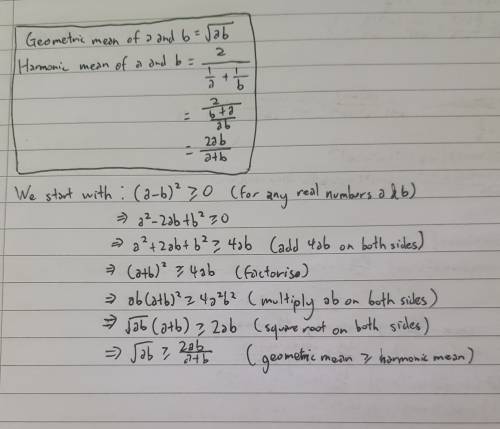 Geometric mean of a and b = √ab
Harmonic mean of a and b = 2 / (1/a + 1/b)
= 2 / ((b+a)/ab)
= 2ab/(a+b)
We start with : (a-b)² ≥ 0 (for any real numbers a & b)
⇒ a²-2ab+b² ≥ 0
⇒ a²+2ab+b² ≥ 4ab (add 4ab on both sides)
⇒ (a+b)² ≥ 4ab (factorise)
⇒ ab(a+b)² ≥ 4a²b² (multiply ab on both sides)
⇒ √ab (a+b) ≥ 2ab (square root on both sides)
⇒ √ab ≥ 2ab/(a+b) (geometric mean ≥ harmonic mean)